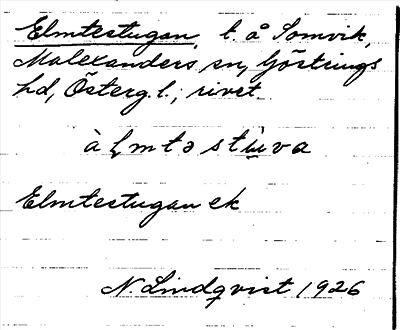 Elmtestugan, t. å Somvik,
Malexanders sn, Göstrings
hd, Österg. l.; rivet
à l̥mtə stu̇va
Elmtestugan ek
N. Lindqvist 1926